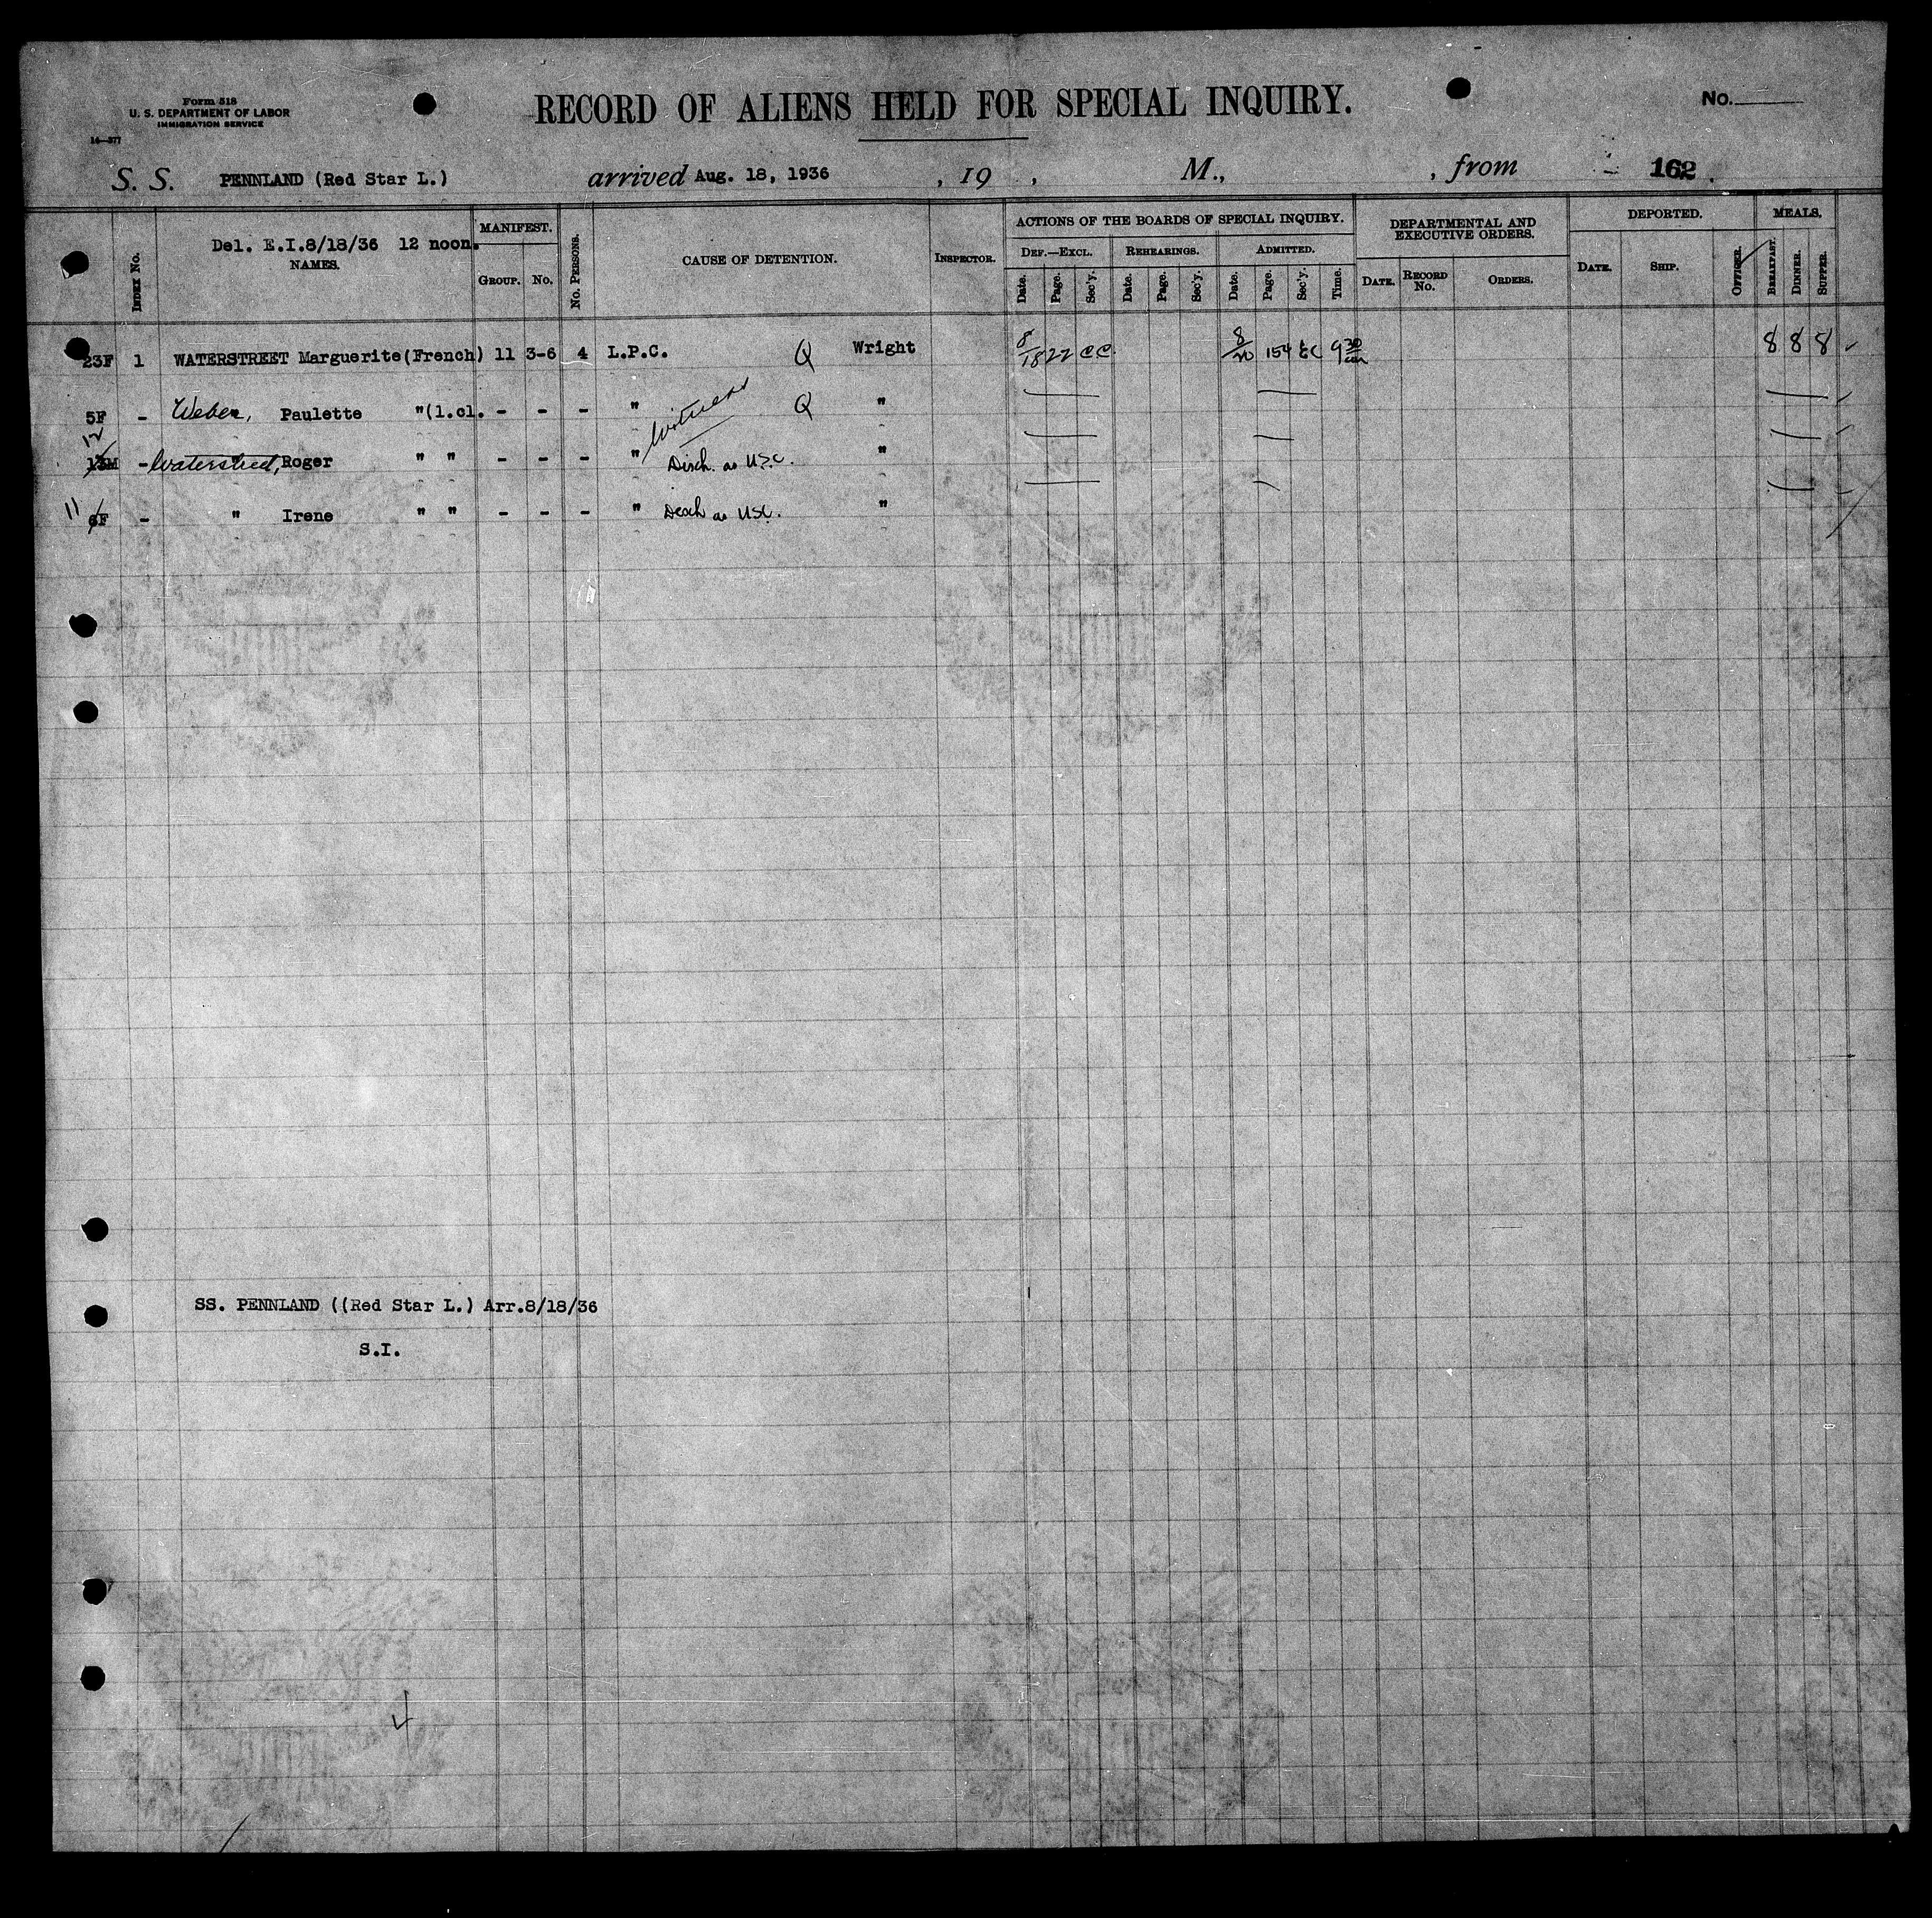 Form 518
U. S. DEPARTMENT OF LABOR
IMMIGRATION SERVICE
14—577
RECORD OF ALIENS HELD FOR SPECIAL INQUIRY.
No.
S. S. PENNLAND (Red Star L.) arrived Aug. 18, 1936 , 19 , M., , from 162
Del. E.I.8/18/36 12 noon.
INDEX No. NAMES. MANIFEST. GROUP. No. No. PERSONS. CAUSE OF DETENTION. INSPECTOR. ACTIONS OF THE BOARDS OF SPECIAL INQUIRY. DEPARTMENTAL AND EXECUTIVE ORDERS. DEPORTED. MEALS.
DEF.—EXCL. REHEARINGS. ADMITTED.
Date. Page. Sec'y. Date. Page. Sec'y. Date. Page. Sec'y. Time. DATE. RECORD No. ORDERS. DATE. SHIP. OFFICER. BREAKFAST. DINNER. SUPPER.
23F 1 WATERSTREET Marguerite(French) 11 3-6 4 L.P.C. Q Wright 8/18 22 CC. 8/20 154 EC 9 30 am 8 8 8
5F - Weber, Paulette "(1.cl. - - - " Witness Q "
12
13M - Waterstreet, " Roger " " - - - " Disch. as U.S.C. "
11 6F - " Irene " " - - - " Disch as USC. "
SS. PENNLAND ((Red Star L.) Arr.8/18/36
S.I.